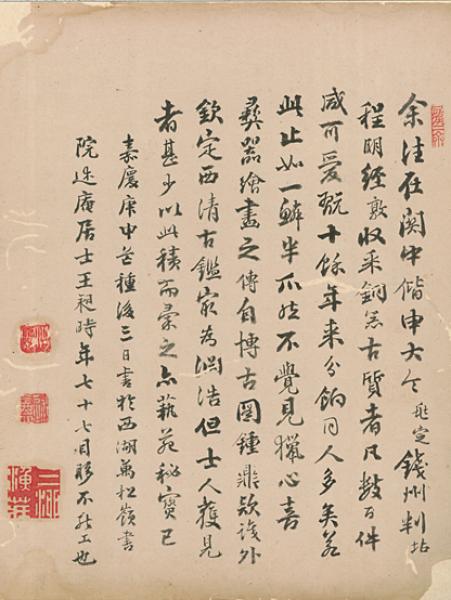 余往在關中偕申大令兆定錢州判坫
程明經敦收采銅器古質者凡數百件
咸可愛翫十餘年來分餉同人多矣若
此止如一臠半爪然不覺見獵心喜
彝器繪畫之傳自博古圖鍾鼎款識外
欽定西清古鑑為淵浩但士人獲見
者甚少以此積而彙之亦藝苑秘寶已
嘉慶庚申芒種後三日書於西湖萬松嶺書
院述庵居士王昶時年七十七目眵不能工也
三泖漁莊